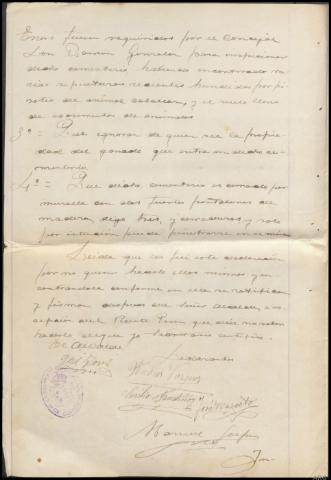 Enero fueron requeridos por el Concejal
Don Ramon Gonzalez para inspeccionar
dicho cementerio habiendo encontrado va
rias sepulturas recientes hundidas por pi
sotes de animal caballar, y el suelo lleno
de excrementos de animales
3º = Que ignoran de quien sea la propie
dad del ganado que entra en dicho ce
menterio
4º = Que dicho cementerio es cerrado por
muralla con dos fuertes portalones de
madera, digo tres, y cerraduras y solo
por intencion puede penetrarse en mismo
Leida que les fué esta declaracion
por no querer hacerlo ellos mismos y en
contrandola conforme en ella se ratifican
y firman despues del Señor Alcalde, a ex
cepcion del que dice no saber
hacerlo de que yo Secretario certifico.
El Alcalde
Declarantes
Manuel